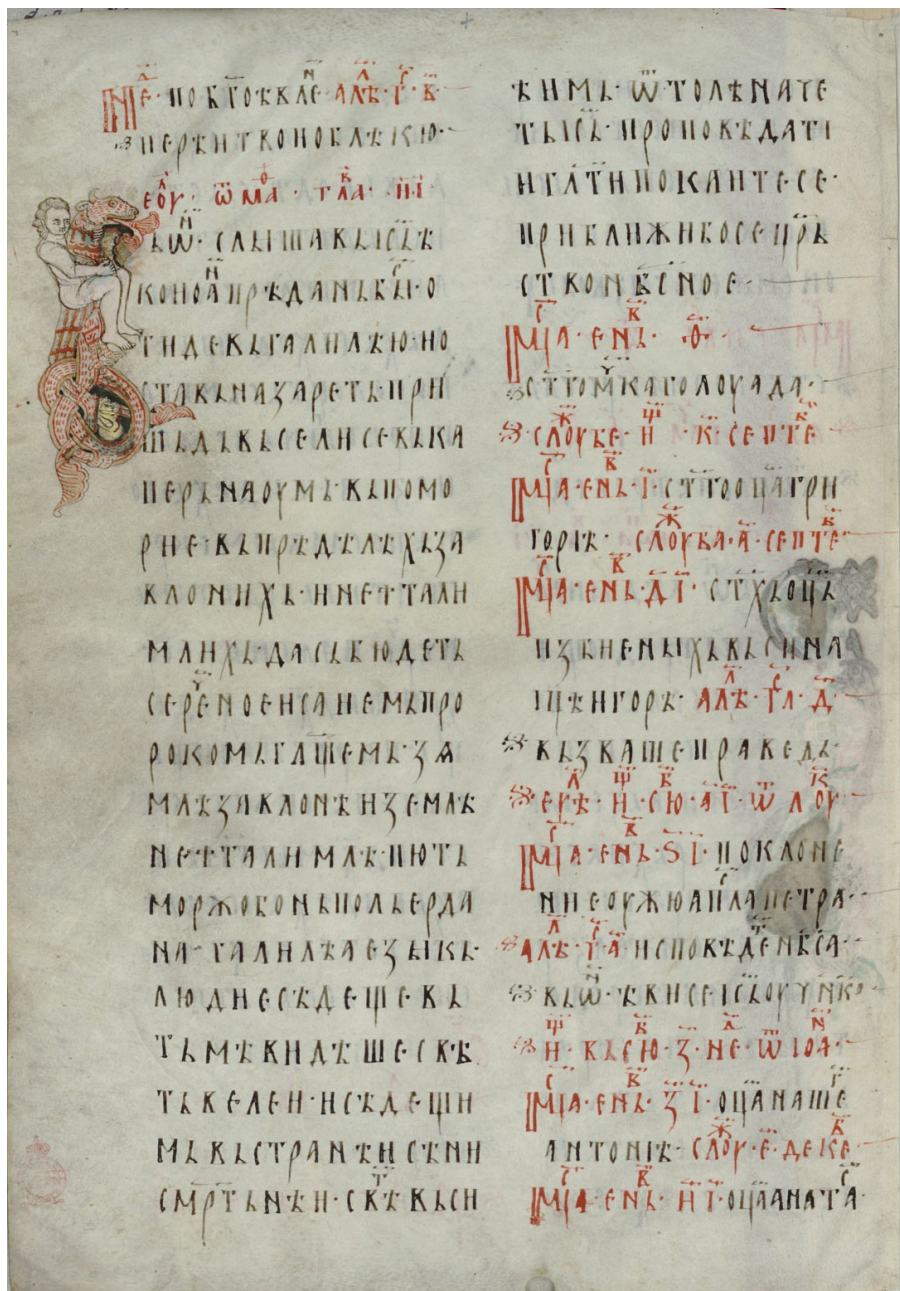 Неⷣ· по бг҃оѣвлеⷩ· алⷧѣ· гⷭ· в҃·
еоⷡу· ѿ маⷴ· гла· н҃і·
Вь ѡⷩ· слышавь іс҃ь ѣ
ко иоаⷩ прѣдань быⷭ· о
тиде вь галилѣю· и о
ставь назареть при
шьдь вьсели се вь ка
перьнаоумь вь помо
рие· вь прѣдѣлѣхь за
влонихь· и неѳтали
млихь· да сьбюдеть
се реⷱеное исаиемь про
рокомь гл҃ашемь· зѧ
млѣ завлонѣ и земле
неѳталимлѣ· пють
морꙗ об онь поль ерда
на· галилѣа езыкь·
людие сѣдеще вь
тьмѣ видѣше свѣ
ть велеи· и сѣдещи
мь вь странѣ и сѣни
смр҃тьнѣи· свѣⷮ вьси
ѣ имь· ѿтолѣ наче
ть іс҃ь· проповѣдати
и гл҃ти покаите се·
приближи бо се цр҃ь
ство нбс҃ное·
Мⷭца· енⷡь· ѳ҃·
слоуⷤбе· иⷳ· к҃· септеⷡ
Мⷭца· енⷡь· і҃· ст҃го оц҃а гри
горіѣ· слоуⷤба· а҃· септеⷡ·
Мⷭца· енⷡь· д҃і· ст҃хь оц҃ь
избиеныхь вь сина
іцѣи горѣ· алⷧѣ· гⷭл· д҃·
вьзваше праведь·
еⷡѵⷧѣ· иⷳ· сюⷠ· а҃і· ѿ лоуⷦ
Мⷭца· енⷡь· ѕ҃і· поклоне
ние оужю апⷭла петра·
алⷧѣ· гⷭ· а҃· исповѣдеⷮ нбс҃а·
иⷳ· вь сюⷠ· з҃· неⷣ· ѿ іоаⷩ·
Мⷭца· енⷡь· з҃і· оц҃а нашеⷢ
антоніѣ· слоуⷤ· е҃· декеⷡ·
Мⷭца· енⷡь· и҃і· оц҃а анатаⷭ·